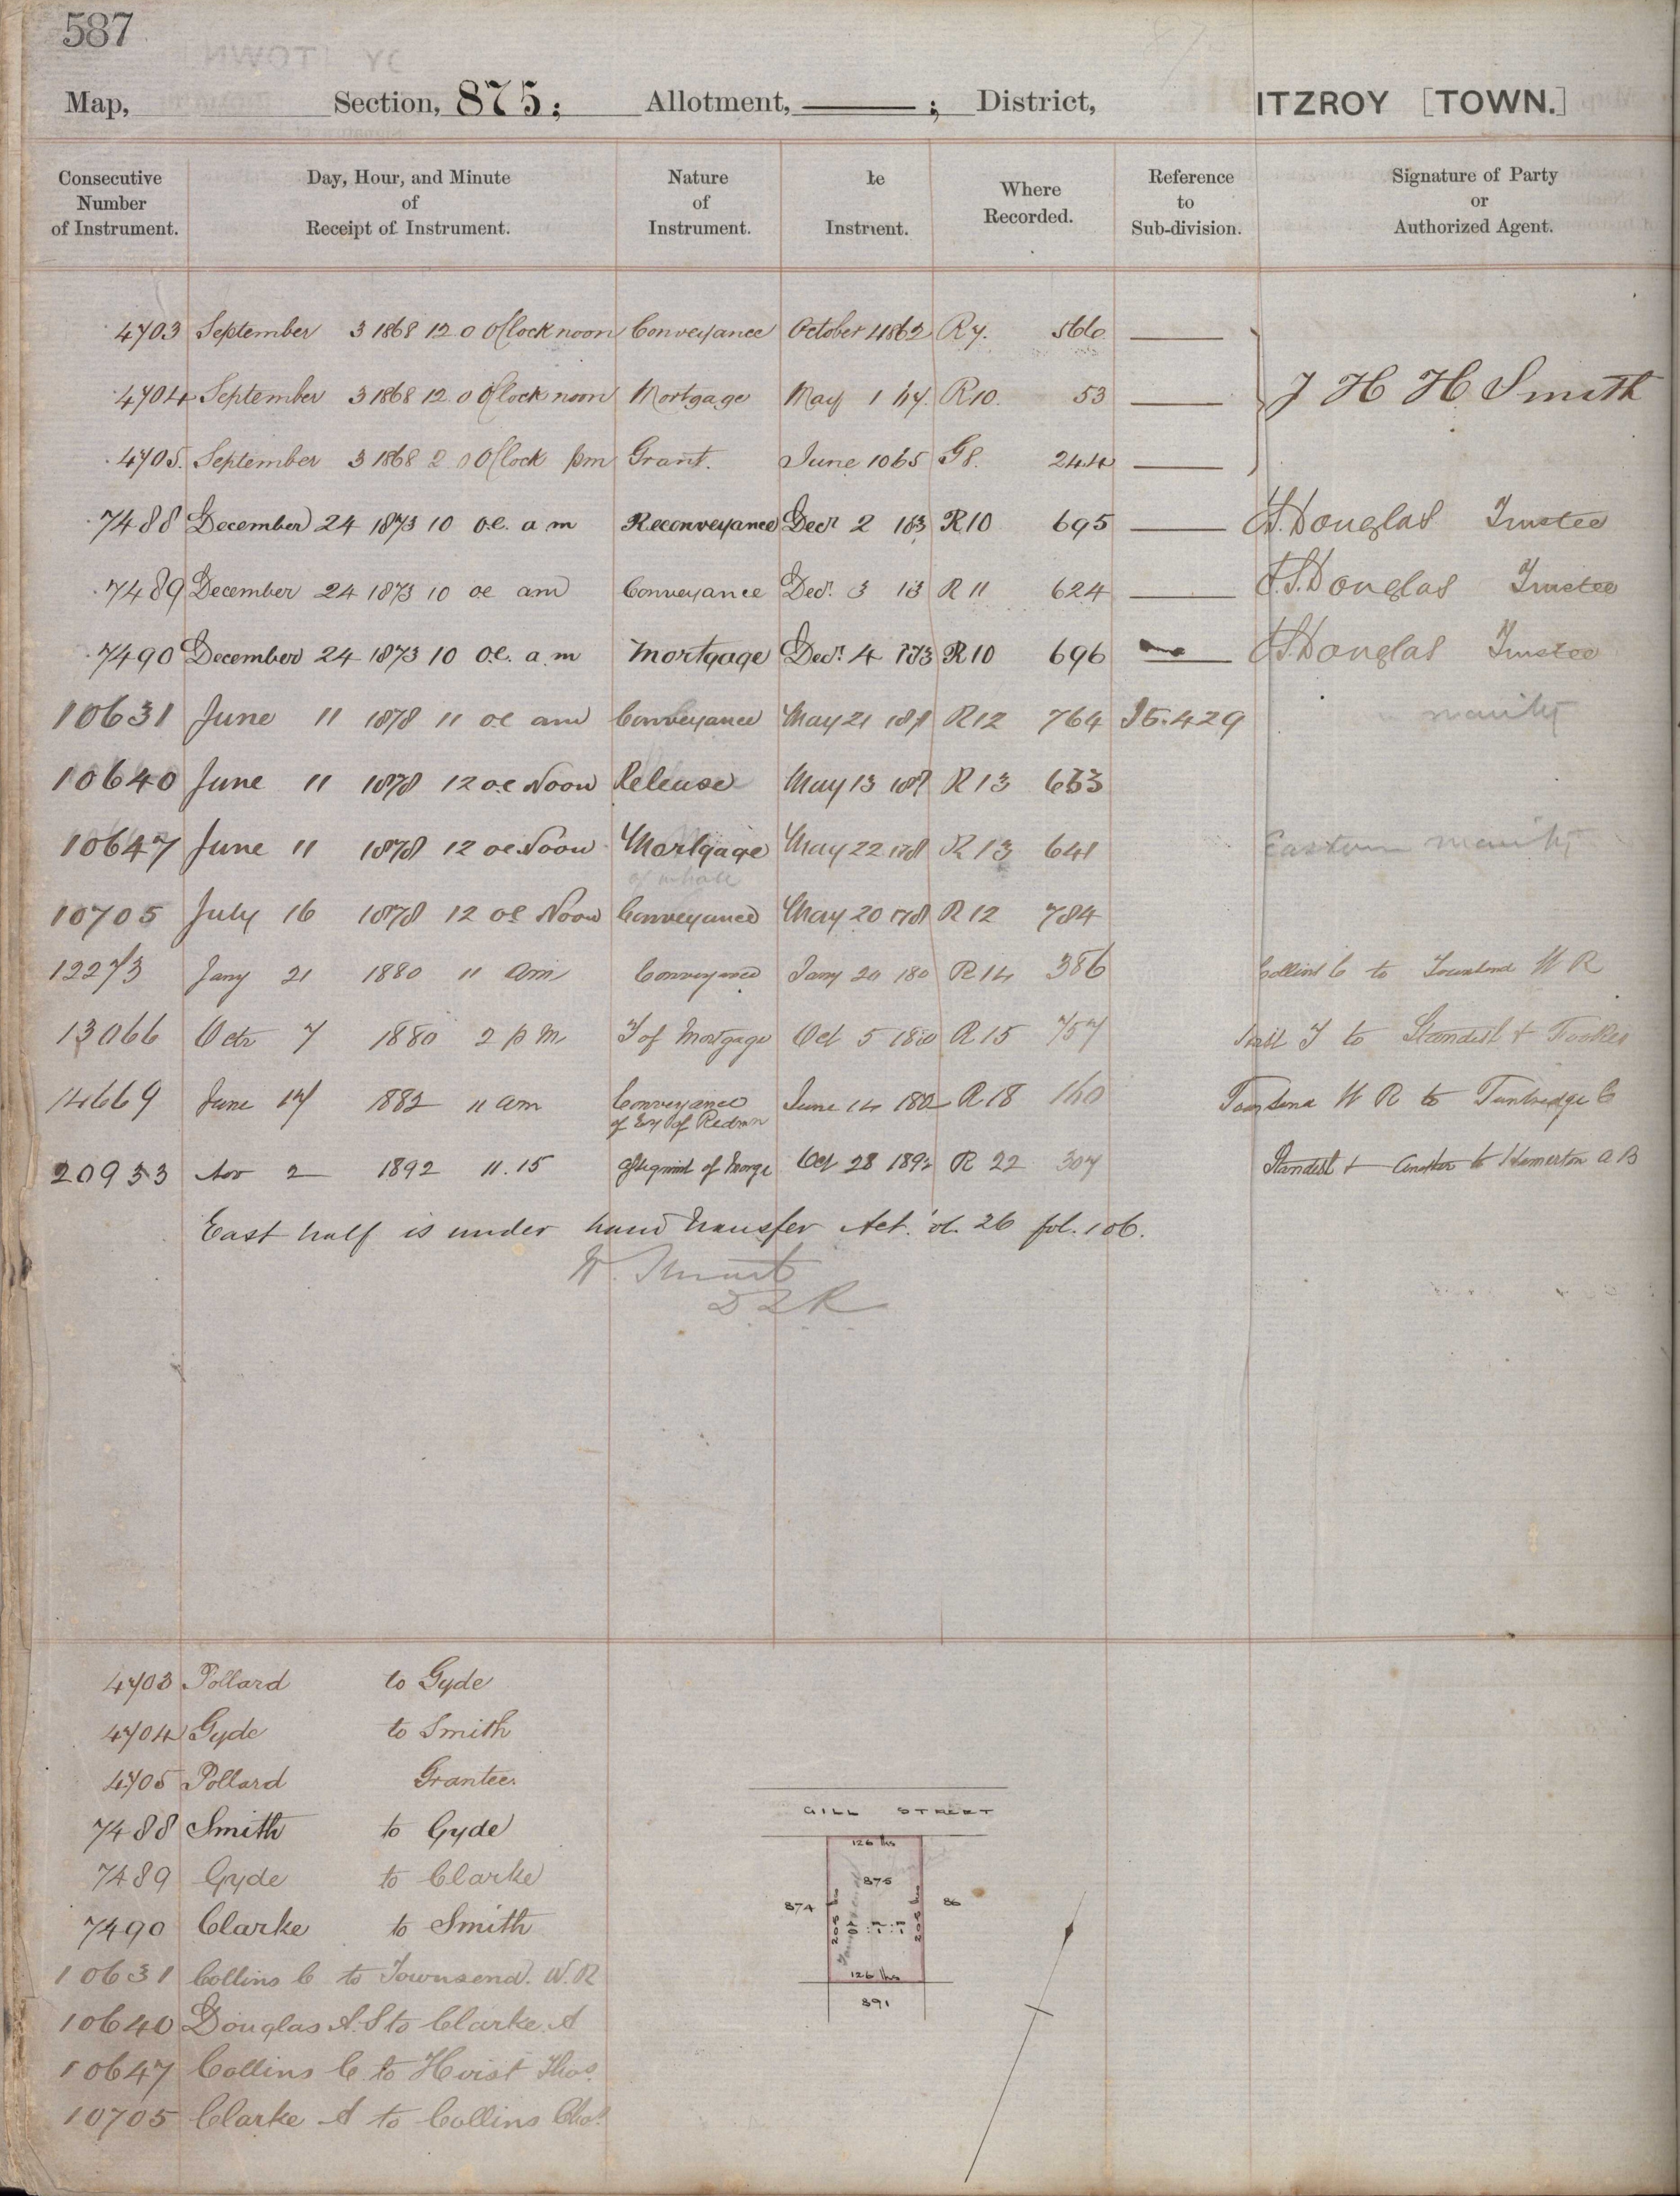 587
Map, Section, 875; Allotment, ———; District, ITZROY [TOWN.]
Consecutive Number of Instrument. Day, Hour, and Minute of Receipt of Instrument. Nature of Instrument. te Instrıent. Where Recorded. Reference to Sub-division. Signature of Party or Authorized Agent.
4703 September 3 1868 12.0 OClock noon Conveyance October 4 1862 R7. 566 ———
4704 September 3 1868 12.0 OClock noon Mortgage May 1 R10. 53 ——— J H H Smith
4705. September 3 1868 2 0 OClock pm Grant. June 10 65 G8. 244 ———
7488 December 24 1873 10 oc. a m Reconveyance Decr 2 183 R10 695 ——— Douglas Trustee
7489 December 24 1873 10 oc am Conveyance Decr. 3 R11 624 ——— Douglas Trustee
7490 December 24 1873 10 oc. a.m Mortgage Decr. 4 R10 696 ——— Douglas Trustee
10631 June 11 1878 11 oc am Conveyance May 21 187 R12 764 I5.429
10640 June 11 1878 12 oc Noon Release May 13 187 R13 633
10647 June 11 1878 12 oc Noon Mortgage May 22 178 R13 641 Eastern
of whole
10705 July 16 1878 12 oc Noon Conveyance May 20 178 R12 784
12273 Jany 21 1880 11 am Conveyance Jany 20 180 R14 386 Collins C to Townsend W R
13066 Octr 7 1880 2 p m T of Mortgage Oct 5 180 R15 757 to Standish + Fookes
14669 June 17 1882 11 am Conveyance June 14 182 R18 160 Townsend W R to Tuntredge C
of Ey of Redmn
20953 Nov 2 1892 11.15 of Morge Oct 28 1892 R 22 307 Standish + another to Hamerton A B
East half is under Land Transfer Act. Vol. 26 fol. 106.
W. Stuart
D L R
4703 Pollard to Gyde
4704 Gyde to Smith
4705 Pollard Grantee.
7488 Smith to Gyde
7489 Gyde to Clarke
7490 Clarke to Smith
10631 Collins C to Townsend. W. R
10640 Douglas A. S to Clarke. A
10647 Collins C to Hoist Thos.
10705 Clarke A to Collins Chas.
GILL STREET
126 lks
875
874
86
208 lks
208 lks
0 : 1 : 1
126 lks
891